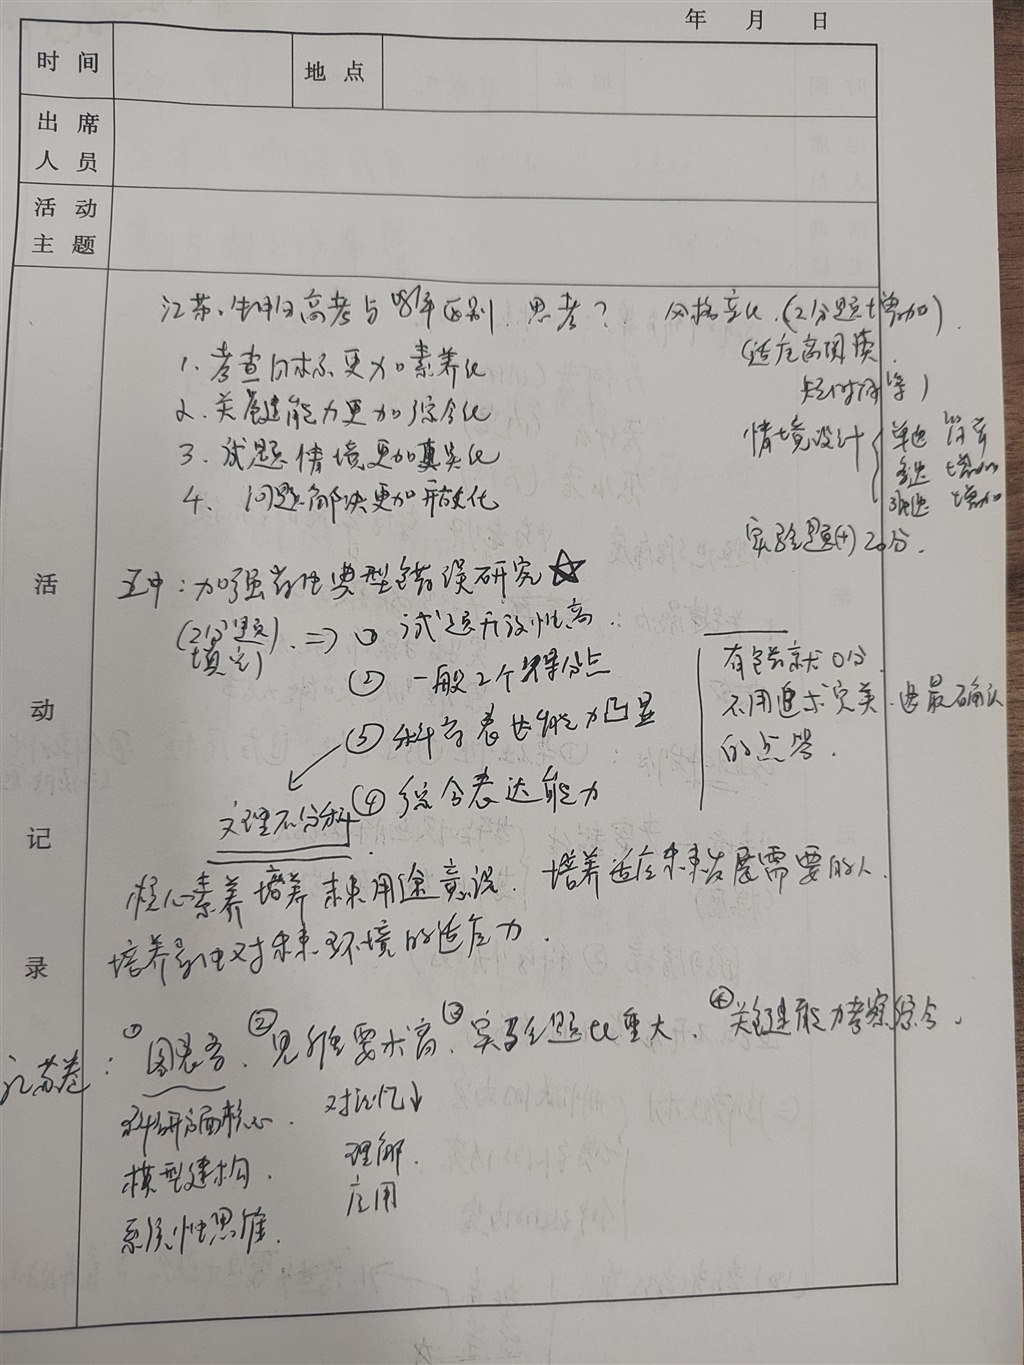 年 月 日
时 间
地 点
出 席
人 员
活 动
主 题
江苏、高考与 区别 思考? 风格变化.(2分题增加).
1. 考查目标 更加素养化
(适应高阅读.
2. 关键能力更加综合化
3. 试题情境更加真实化
情境设计 { 单选
多选 增加
非选 增加
4. 问题解决更加开放化
实验题(+)20分.
活
动
记
录
: 加强 典型错误研究☆
(2分题
填空) => ① 试题开放性高.
② 一般2个得分点
③ 科学表达能力凸显
④ 综合表达能力
文理不分科
有错就0分.
不用追求完美. 选最确认
的点答.
核心素养培养 未来用途意识. 培养适应未来发展需要的人.
培养 对未来环境的适应力.
江苏卷: ① 图表多. ② 思维要求高. ③ 实验题比重大. ④ 关键能力考察综合.
科研方面核心.
模型建构.
系统性思维.
对记忆↓
理解.
应用